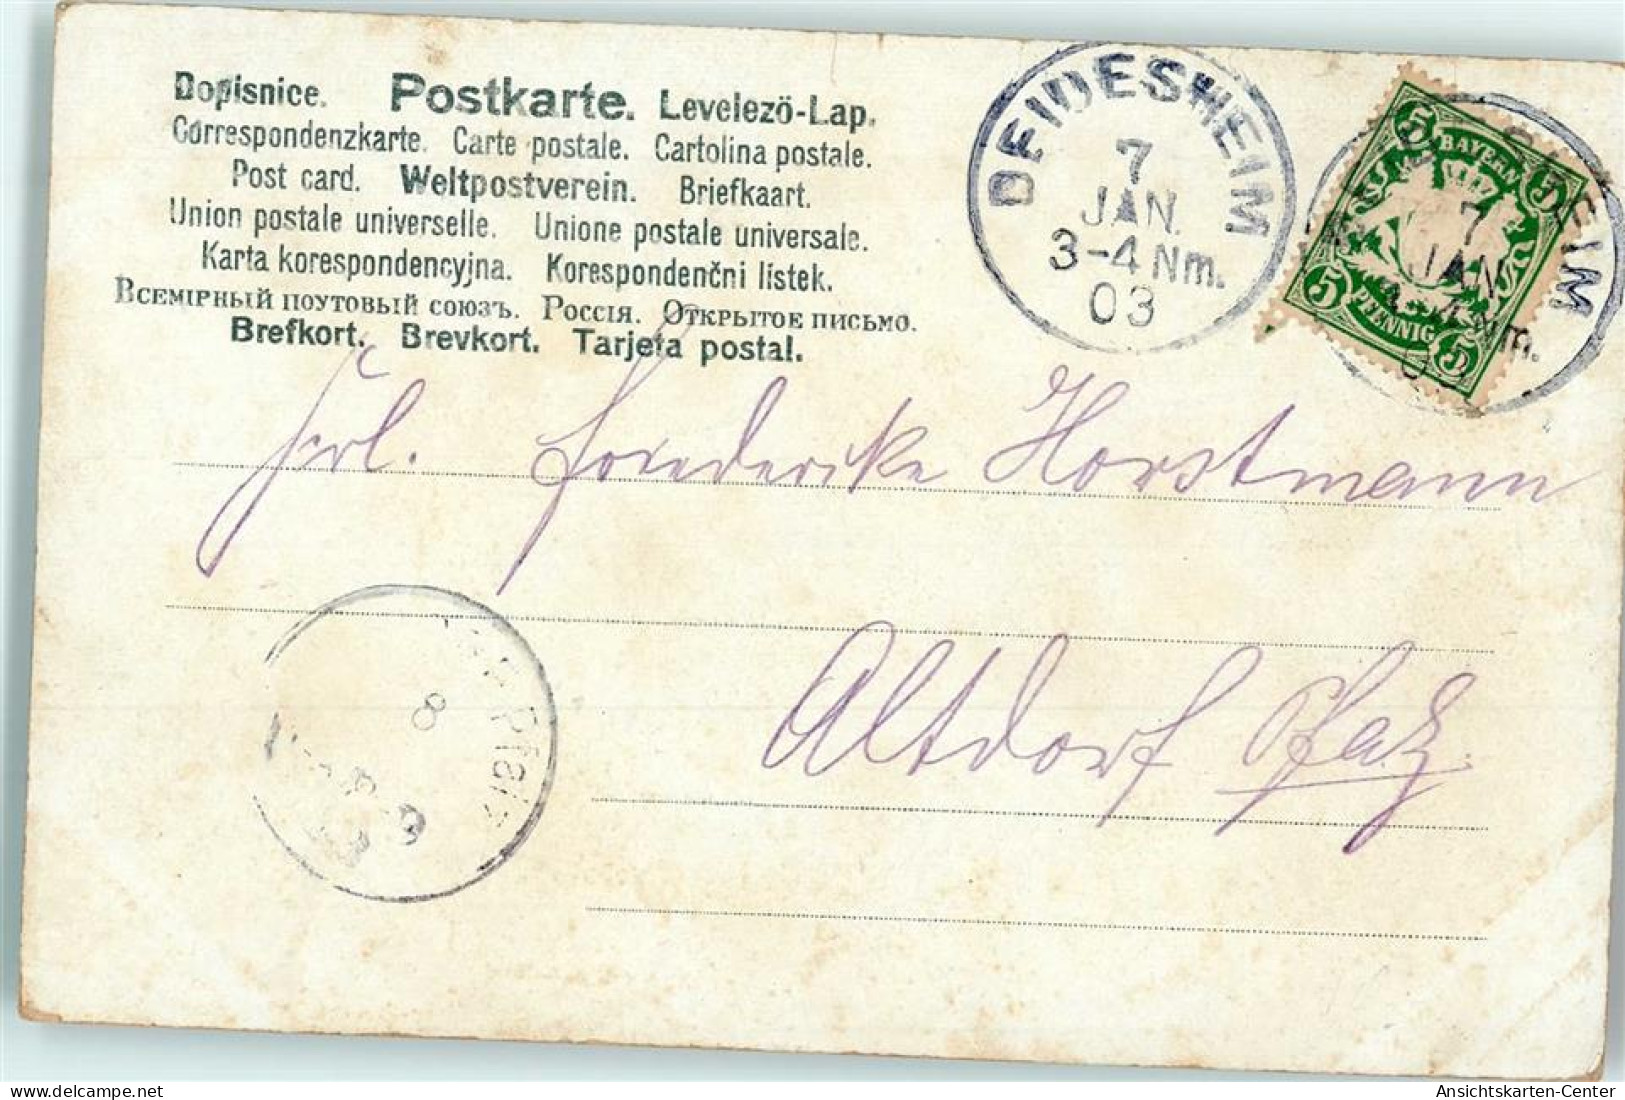 Dopisnice. Postkarte. Levelező-Lap.
Correspondenzkarte. Carte postale. Cartolina postale.
Post card. Weltpostverein. Briefkaart.
Union postale universelle. Unione postale universale.
Karta korespondencyjna. Korespondenčni listek.
Всемірный поутовый союзъ. Россія. Открытое письмо.
Brefkort. Brevkort. Tarjeta postal.
DEIDESHEIM
7
JAN.
3-4 Nm.
03
5 5
BAYERN
5 PFENNIG 5
7
JAN.
Nm.
Frl. Friederike Horstmann
Altdorf Pfalz.
Pfalz
8